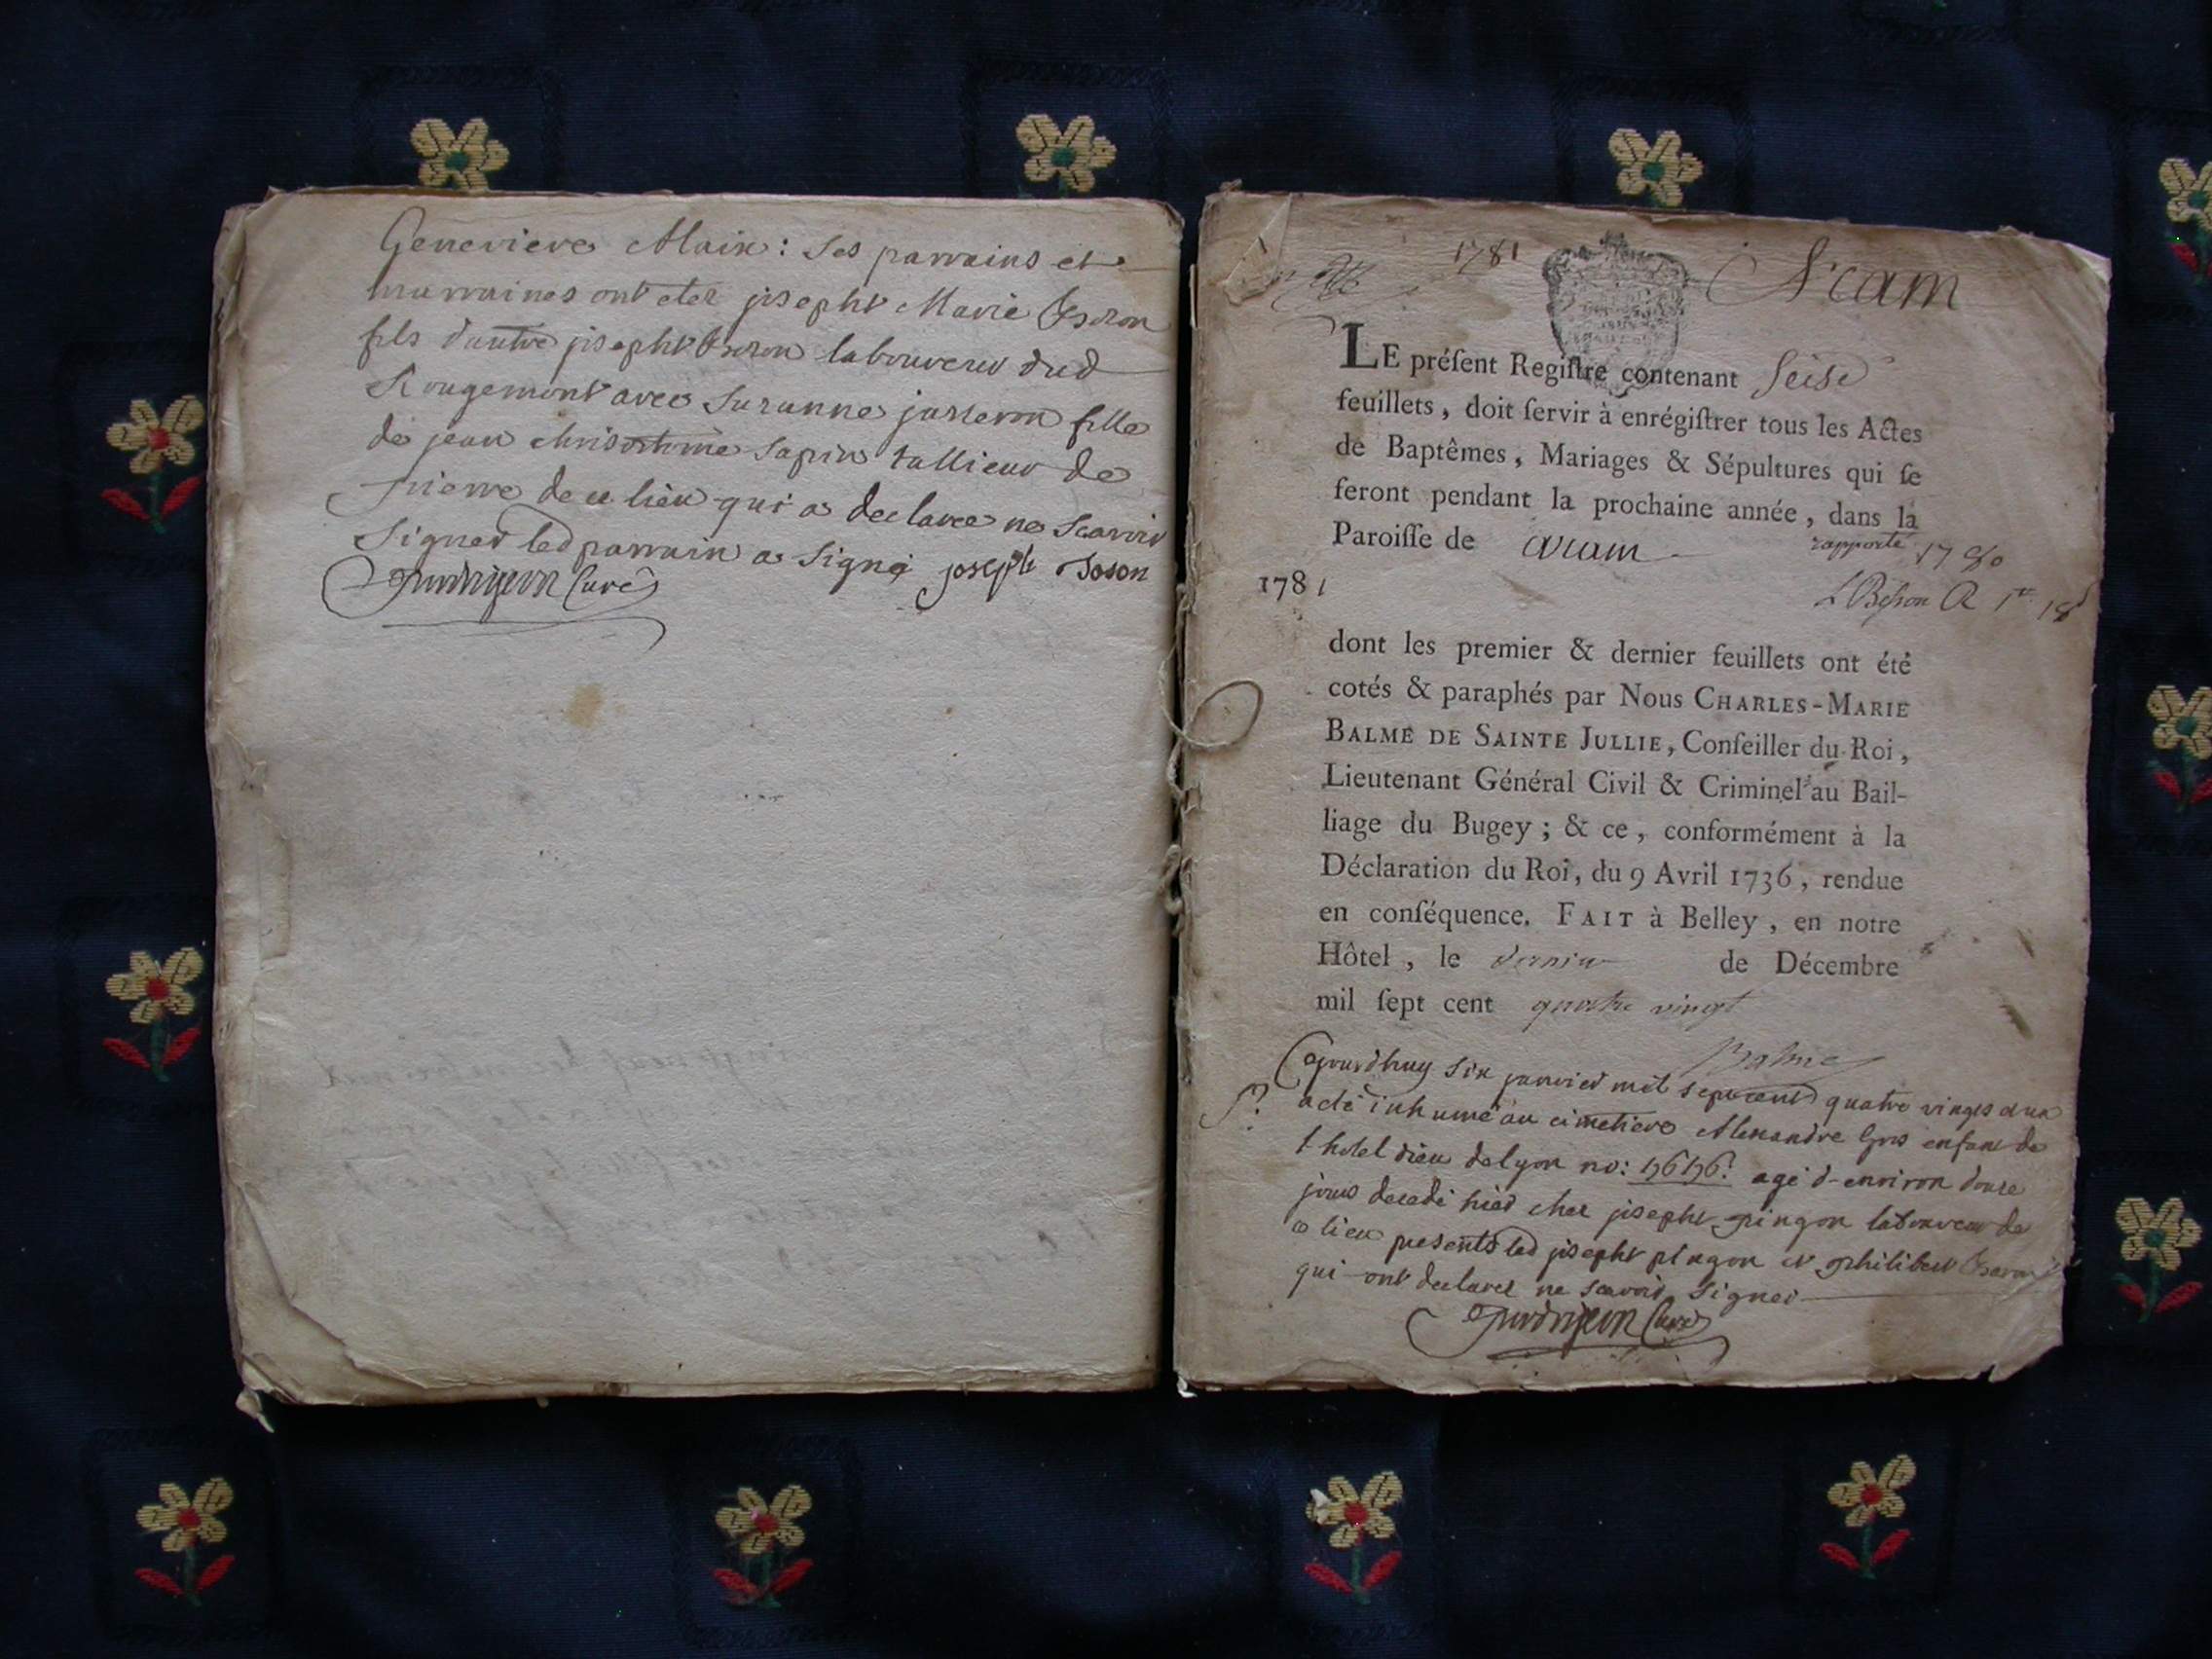 Genevieve Alain: Ses parrains et
marraines ont etez joseph Marie
fils d'autre joseph laboureur dud
Rougemont avec Suzanne fille
de jean chrisostome Sapin tallieur de
pierre de ce lieu qui a declaree ne scavoir
signer led parrain a signé joseph
Curé
1781
Aram
LE préſent Regiſtre contenant Seise
feuillets, doit ſervir à enrégiſtrer tous les Actes
de Baptêmes, Mariages & Sépultures qui ſe
feront pendant la prochaine année, dans la
Paroiſſe de Aram rapporté 1780
1781
dont les premier & dernier feuillets ont été
cotés & paraphés par Nous CHARLES-MARIE
BALME DE SAINTE JULLIE, Conſeiller du Roi,
Lieutenant Général Civil & Criminel au Bail-
liage du Bugey ; & ce, conformément à la
Déclaration du Roi, du 9 Avril 1736, rendue
en conſéquence. FAIT à Belley, en notre
Hôtel, le dernier de Décembre
mil ſept cent quatre vingt
Balme
Cejourdhuy six janvier mil sept cent quatre vingts et un
S.
a eté inhumé au cimetiere Alexandre Gris enfant de
l hotel dieu de lyon no: agé d-environ douse
jours decedé hier chez joseph pingon laboureur de
ce lieu presents led joseph pingon et philibert
qui ont declarez ne scavoir signer
Curé